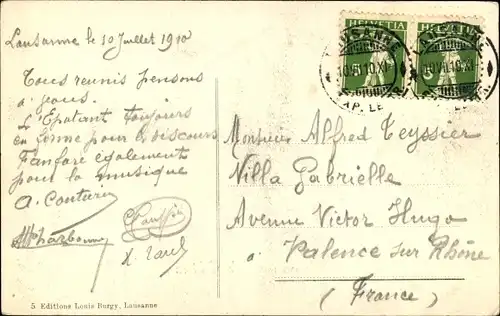 Lausanne le 10 Juillet 1910
Tous reunis pensons
a vous.
L'Epatant toujours
en forme pour le discours
Fanfare également
pour la musique
a. Couturier
HELVETIA HELVETIA
LAUSANNE
10.VII.10.XI
Monsieur Alfred Teyssier
Villa Gabrielle
Avenue Victor Hugo
à Valence sur Rhône
(France)
5. Editions Louis Burgy, Lausanne